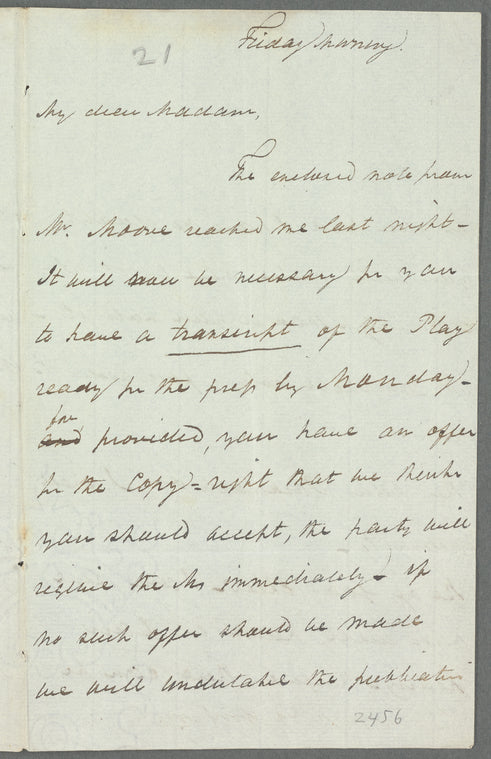 21
Friday Morning.
My dear Madam,
The enclosed note from
Mr. Moore reached me last night -
It will now be necessary for you
to have a transcript of the Play
ready for the press by Monday -
for
and provided, you have an offer
for the Copy=right that we think
you should accept, the party will
require the Ms immediately - if
no such offer should be made
we will undertake the publication
2456